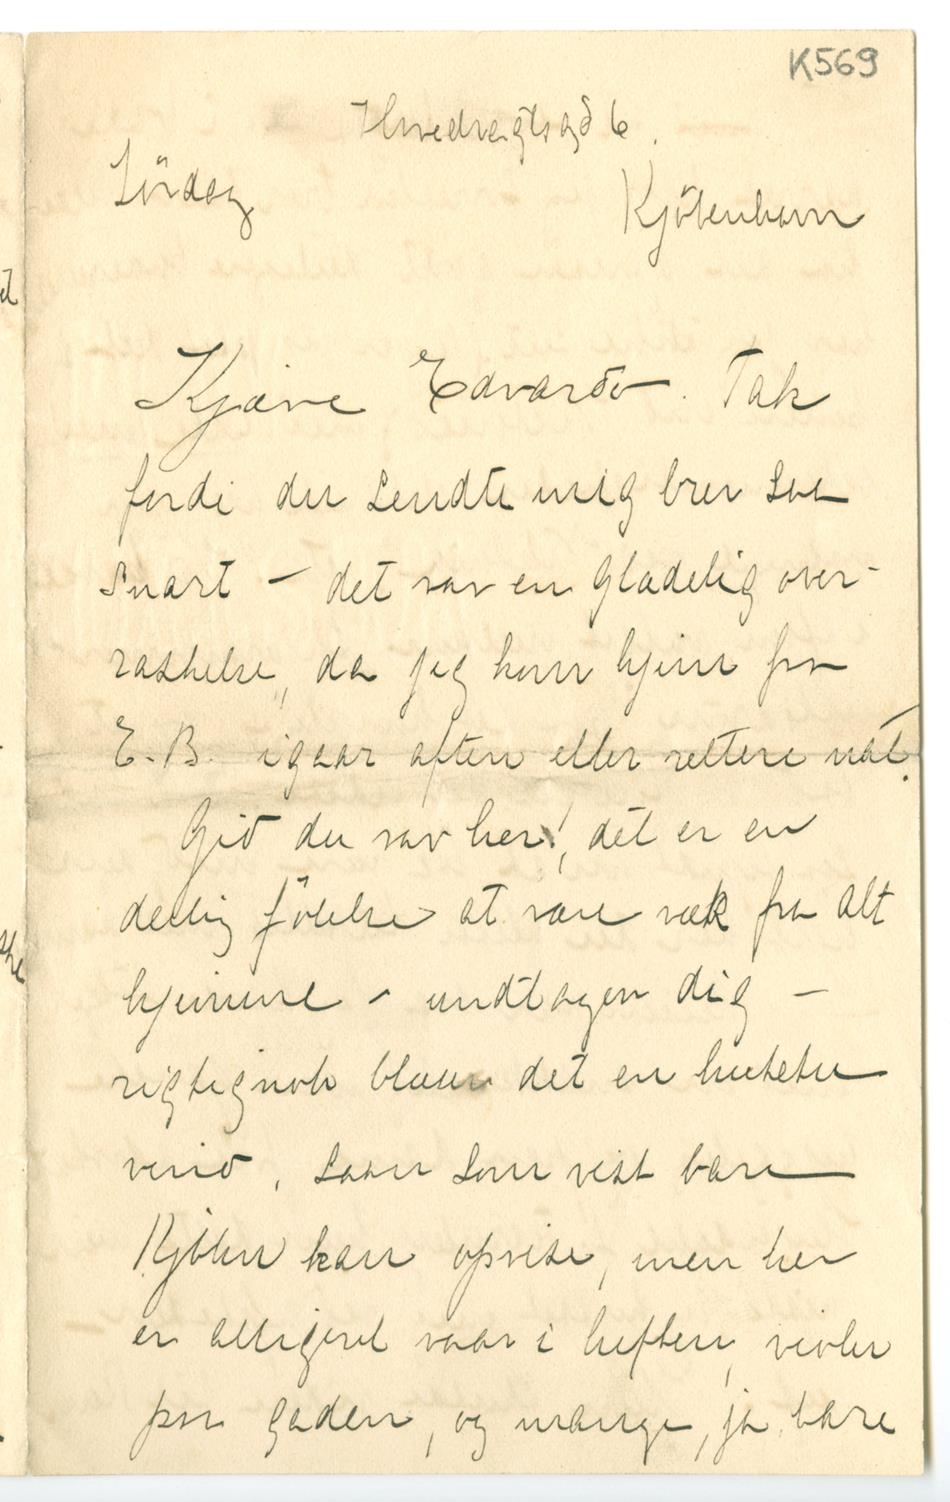 K569
Hvedvegtsgd 6.
Lördag
Kjöbenhavn
Kjære Edvardo. Tak
fordi du sendte mig brev saa
snart – det var en glædelig over-
raskelse, da jeg kom hjem fra
E.B. igaar aften eller rettere nat.
Gid du var her!, det er en
deilig følelse at være væk fra alt
hjemme – undtagen dig –
rigtignok blæser det en
vind, saan som vist bare
Kjöben kan opvise, men her
er alligevel vaar i luften, violer
paa gaden, og mange, ja bare